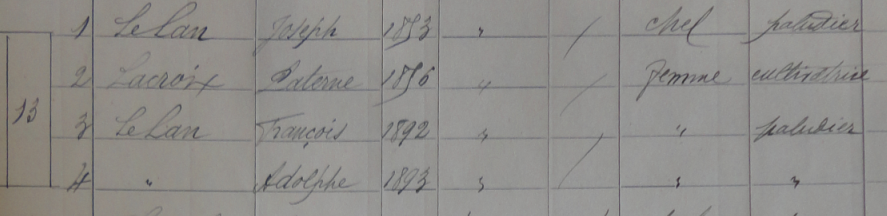 1 Le Lan Joseph 1853 " / chef paludier
2 Lacroix Paterne 1856 " / femme cultivatrice
13
3 Le Lan François 1892 " / " paludier
4 " Adolphe 1893 " / " "